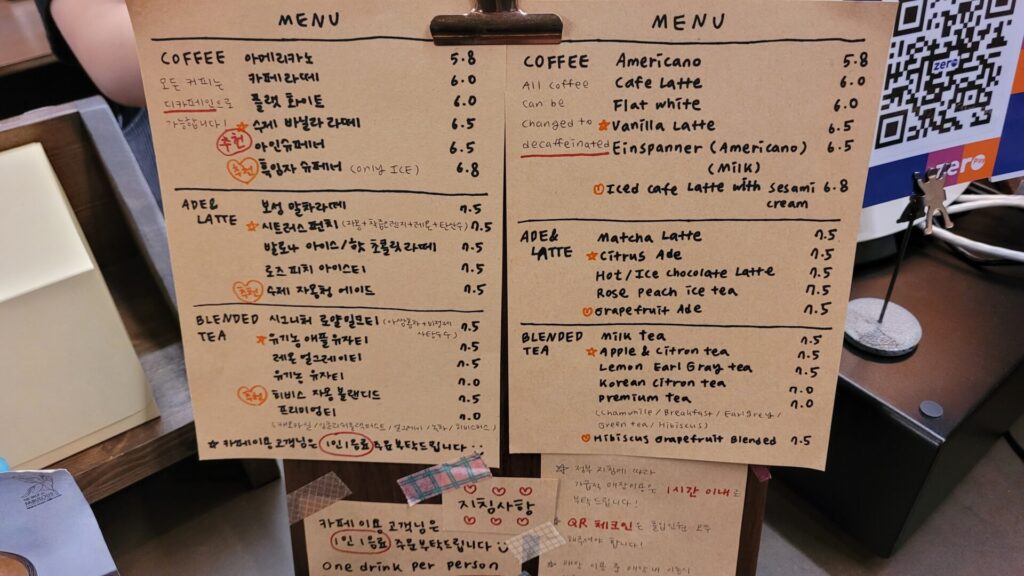 MENU
COFFEE 아메리카노 5.8
모든 커피는 카페라떼 6.0
디카페인으로 플랫 화이트 6.0
가능합니다! ☆ 수제 바닐라 라떼 6.5
추천 아인슈페너 6.5
추천 흑임자 슈페너 (only ICE) 6.8
ADE& LATTE 보성 말차라떼 7.5
☆ 시트러스 펀치 7.5
발로나 아이스/핫 초콜릿 라떼 7.5
로즈 피치 아이스티 7.5
추천 수제 자몽청 에이드 7.5
BLENDED TEA 시그니처 로얄밀크티 7.5
☆ 유기농 애플 유자티 7.5
레몬 얼그레이티 7.5
유기농 유자티 7.0
추천 히비스 자몽 블랜디드 7.5
프리미엄티 7.0
☆ 카페이용 고객님은 1인 1음료 주문부탁드립니다
MENU
COFFEE Americano 5.8
All coffee Cafe Latte 6.0
can be Flat white 6.0
changed to ☆ Vanilla Latte 6.5
decaffeinated Einspanner (Americano) 6.5
(Milk)
Iced cafe Latte with sesami 6.8
cream
ADE& LATTE Matcha Latte 7.5
☆ Citrus Ade 7.5
Hot/Ice chocolate Latte 7.5
Rose peach ice tea 7.5
Grapefruit Ade 7.5
BLENDED TEA Milk tea 7.5
☆ Apple & Citron tea 7.5
Lemon Earl Gray tea 7.5
Korean Citron tea 7.0
premium tea 7.0
(Chamomile / Breakfast / Earl grey /
Green tea / Hibiscus)
Hibiscus Grapefruit Blended 7.5
지침사항
카페이용 고객님은
1인 1음료 주문부탁드립니다
One drink per person
☆ 정부 지침에 따라
가급적 매장이용은 1시간 이내로
부탁드립니다!
☆ QR 체크인은
해주셔야 합니다!
zero
zero